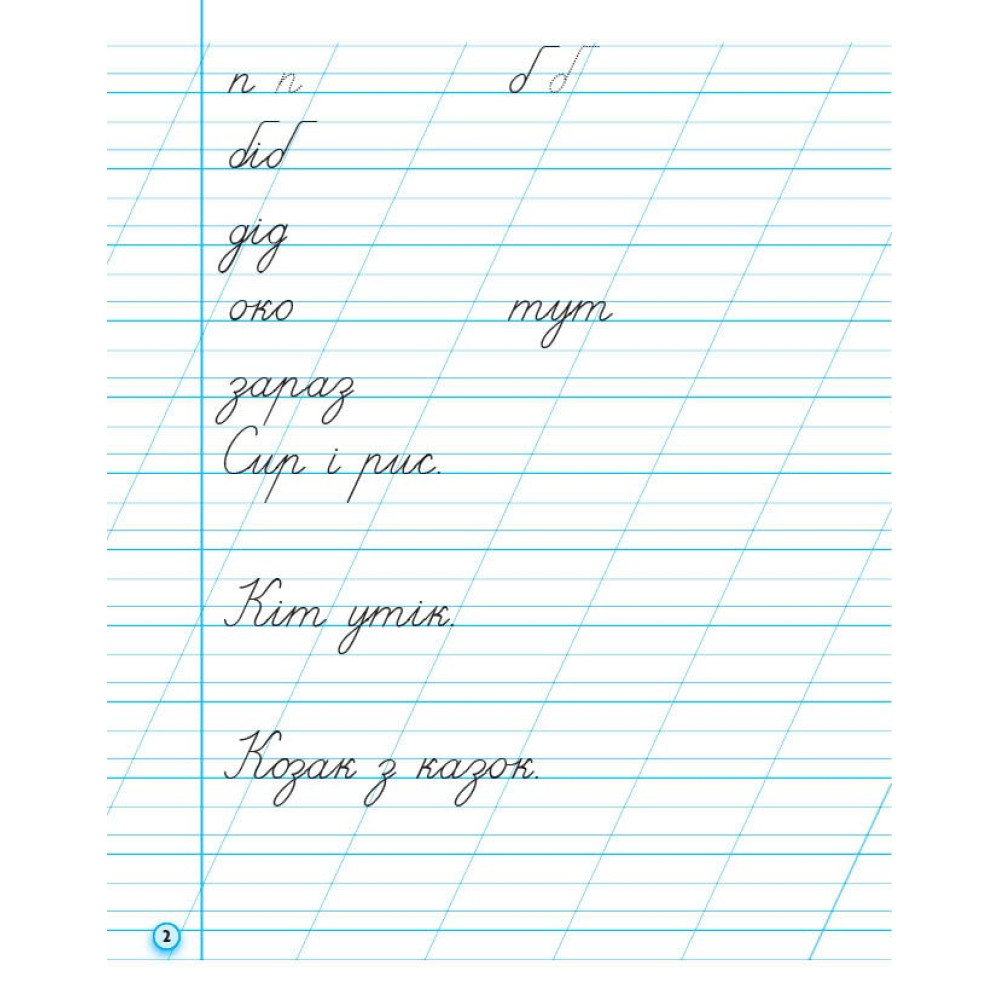 п п б б
біб
дід
око тут
зараз
Сир і рис.
Кіт утік.
Козак з казок.
2